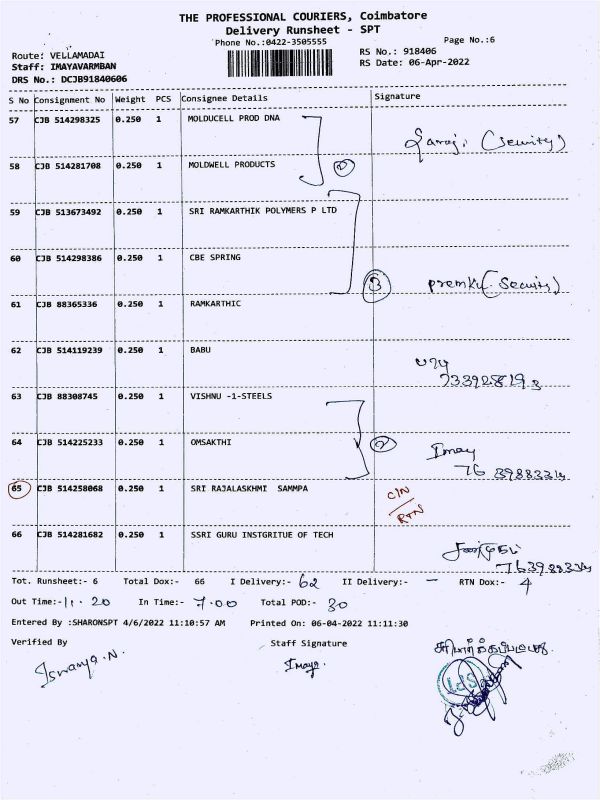 THE PROFESSIONAL COURIERS, Coimbatore
Delivery Runsheet - SPT
Phone No.:0422-3505555 Page No.:6
Route: VELLAMADAI RS No.: 918406
Staff: IMAYAVARMBAN RS Date: 06-Apr-2022
DRS No.: DCJB91840606
S No Consignment No Weight PCS Consignee Details Signature
57 CJB 514298325 0.250 1 MOLDUCELL PROD DNA
(Security)
58 CJB 514281708 0.250 1 MOLDWELL PRODUCTS 2
59 CJB 513674492 0.250 1 SRI RAMKARTHIK POLYMERS P LTD
60 CJB 514298386 0.250 1 CBE SPRING
3 premku (Security)
61 CJB 88365336 0.250 1 RAMKARTHIC
62 CJB 514119239 0.250 1 BABU
பாபு
63 CJB 88308745 0.250 1 VISHNU -1-STEELS
64 CJB 514225233 0.250 1 OMSAKTHI 2
Imay
65 CJB 514258068 0.250 1 SRI RAJALASKHMI SAMMPA C/N
RTN
66 CJB 514281682 0.250 1 SSRI GURU INSTGRITUE OF TECH
Tot. Runsheet:- 6 Total Dox:- 66 I Delivery:- 62 II Delivery:- - RTN Dox:- 4
Out Time:- 11.20 In Time:- 7.00 Total POD:- 30
Entered By :SHARONSPT 4/6/2022 11:10:57 AM Printed On: 06-04-2022 11:11:30
Verified By Staff Signature
Iswarya.N. Imaya.